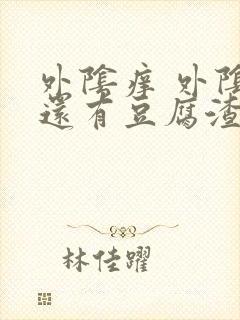 外陰痒 外陰
還有豆腐渣
林佳躍